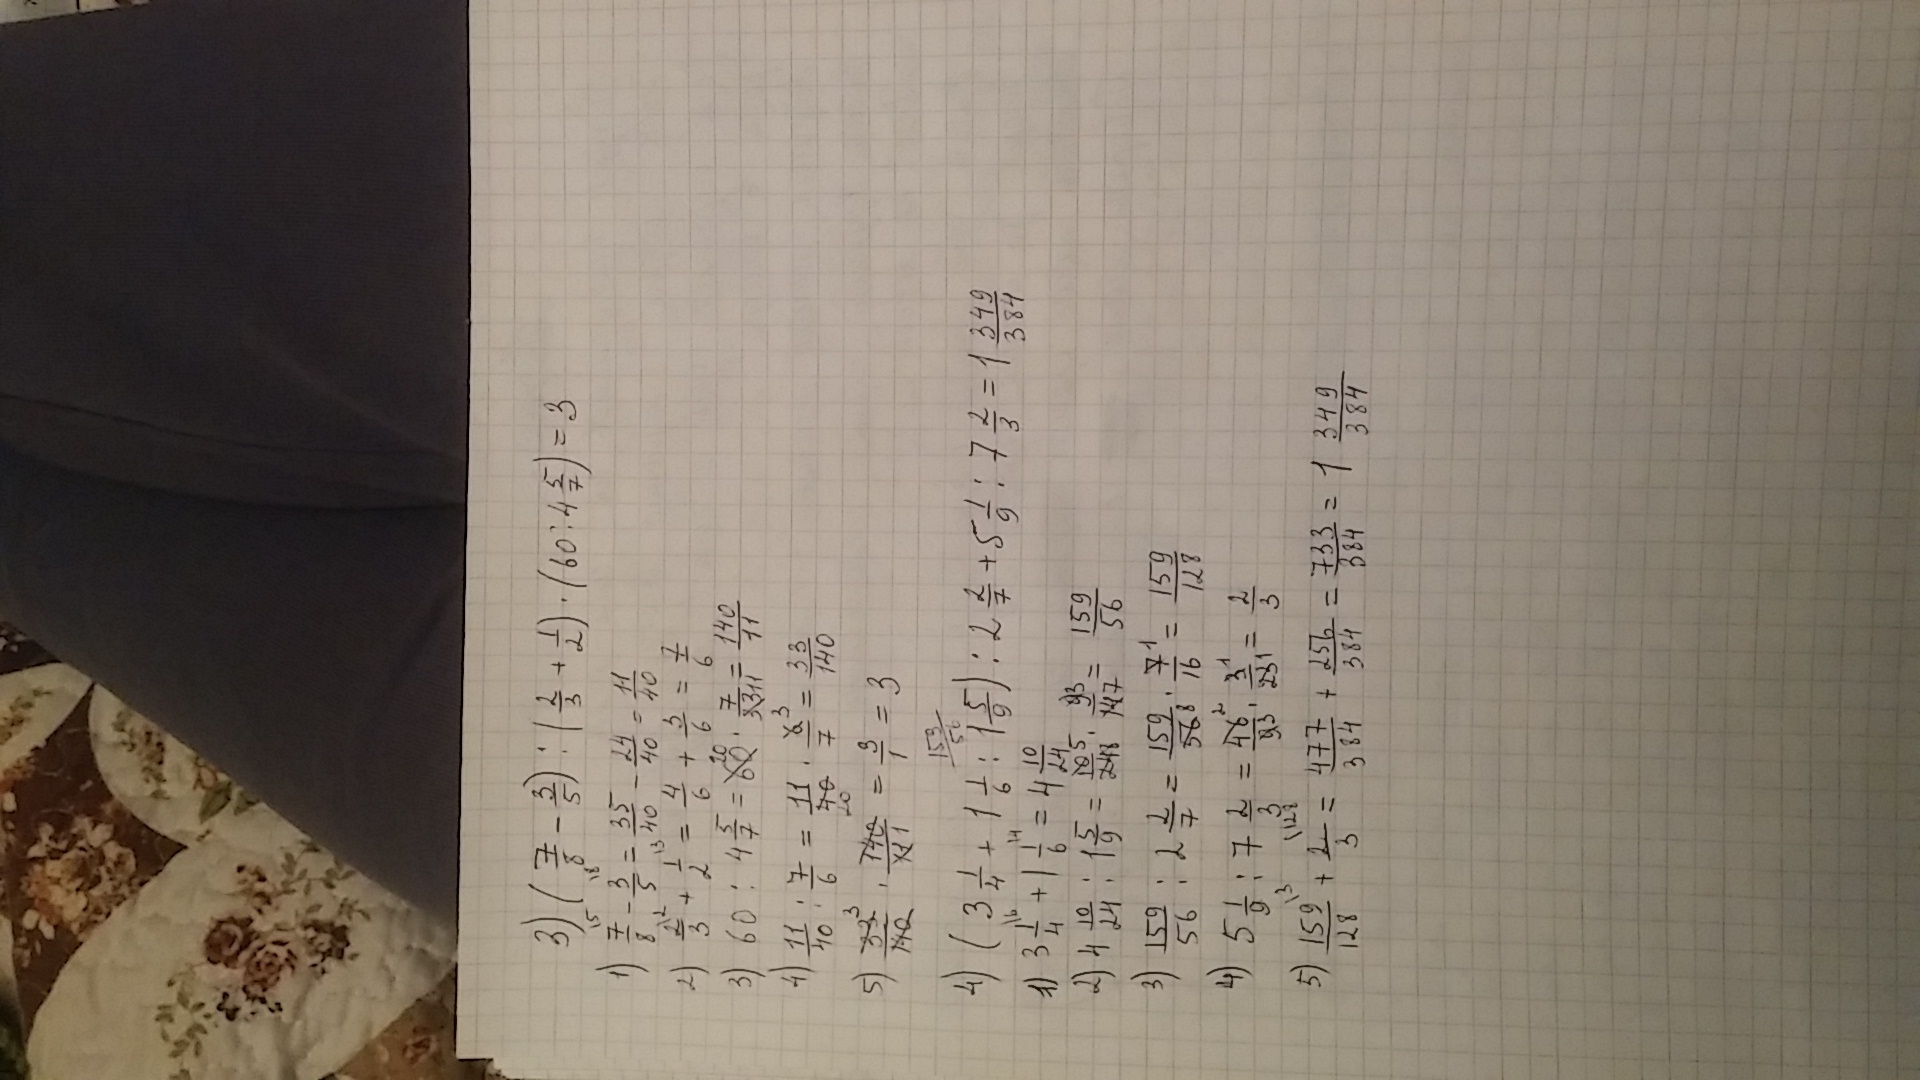 3) (7/8 - 3/5) : (2/3 + 1/2) · (60 : 4 5/7) = 3
1) 7/8 \5 - 3/5 \8 = 35/40 - 24/40 = 11/40
2) 2/3 \2 + 1/2 \3 = 4/6 + 3/6 = 7/6
3) 60 : 4 5/7 = 60 20 · 7/33 11 = 140/11
4) 11/40 : 7/6 = 11/40 20 · 6 3/7 = 33/140
5) 33 3/140 · 140/11 1 = 3/1 = 3
153/56
4) (3 1/4 + 1 1/6 : 1 5/9) : 2 2/7 + 5 1/9 : 7 2/3 = 1 349/384
1) 3 1/4 \6 + 1 1/6 \4 = 4 10/24
2) 4 10/24 : 1 5/9 = 159/56
3) 159/56 : 2 2/7 = 159/56 8 · 7 1/16 = 159/128
4) 5 1/9 : 7 2/3 = 46 2/9 3 · 3 1/23 1 = 2/3
5) 159/128 \3 + 2/3 \128 = 477/384 + 256/384 = 733/384 = 1 349/384